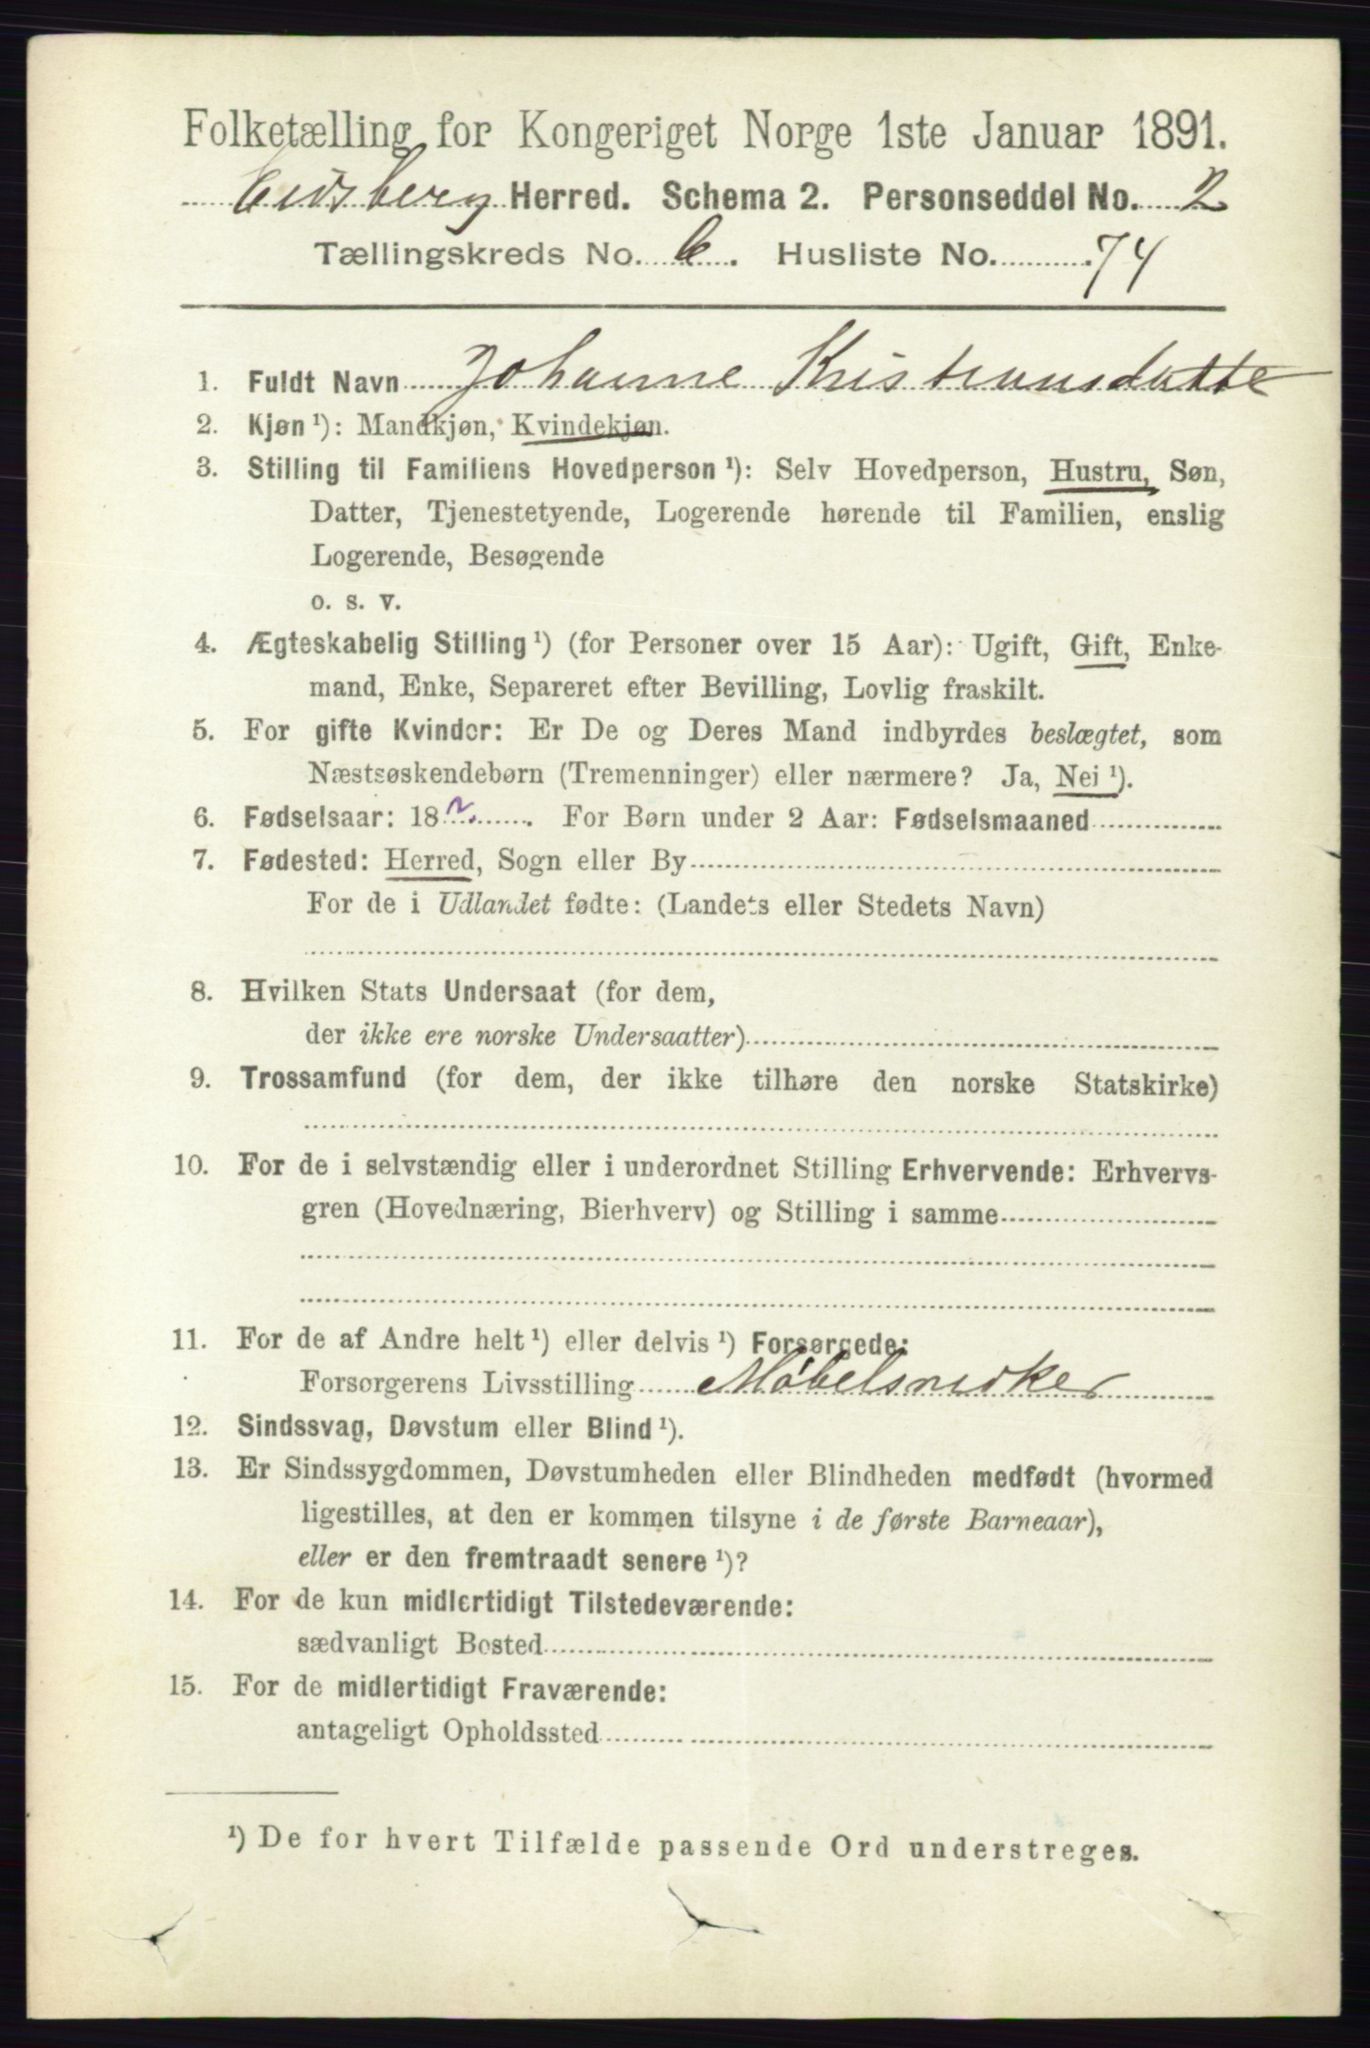 Folketælling for Kongeriget Norge 1ste Januar 1891.
Eidsberg Herred. Schema 2. Personseddel No. 2
Tællingskreds No. 6. Husliste No. 74
1. Fuldt Navn Johanne Kristiansdatte
2. Kjøn ¹): Mandkjøn, Kvindekjøn.
3. Stilling til Familiens Hovedperson ¹): Selv Hovedperson, Hustru, Søn,
Datter, Tjenestetyende, Logerende hørende til Familien, enslig
Logerende, Besøgende
o. s. v.
4. Ægteskabelig Stilling ¹) (for Personer over 15 Aar): Ugift, Gift, Enke-
mand, Enke, Separeret efter Bevilling, Lovlig fraskilt.
5. For gifte Kvinder: Er De og Deres Mand indbyrdes beslægtet, som
Næstsøskendebørn (Tremenninger) eller nærmere? Ja, Nei ¹).
6. Fødselsaar: 18 . For Børn under 2 Aar: Fødselsmaaned
7. Fødested: Herred, Sogn eller By
For de i Udlandet fødte: (Landets eller Stedets Navn)
8. Hvilken Stats Undersaat (for dem,
der ikke ere norske Undersaatter)
9. Trossamfund (for dem, der ikke tilhøre den norske Statskirke)
10. For de i selvstændig eller i underordnet Stilling Erhvervende: Erhvervs-
gren (Hovednæring, Bierhverv) og Stilling i samme
11. For de af Andre helt ¹) eller delvis ¹) Forsørgede:
Forsørgerens Livsstilling Møbelsnedker
12. Sindssvag, Døvstum eller Blind ¹).
13. Er Sindssygdommen, Døvstumheden eller Blindheden medfødt (hvormed
ligestilles, at den er kommen tilsyne i de første Barneaar),
eller er den fremtraadt senere ¹)?
14. For de kun midlertidigt Tilstedeværende:
sædvanligt Bosted
15. For de midlertidigt Fraværende:
antageligt Opholdssted
¹) De for hvert Tilfælde passende Ord understreges.